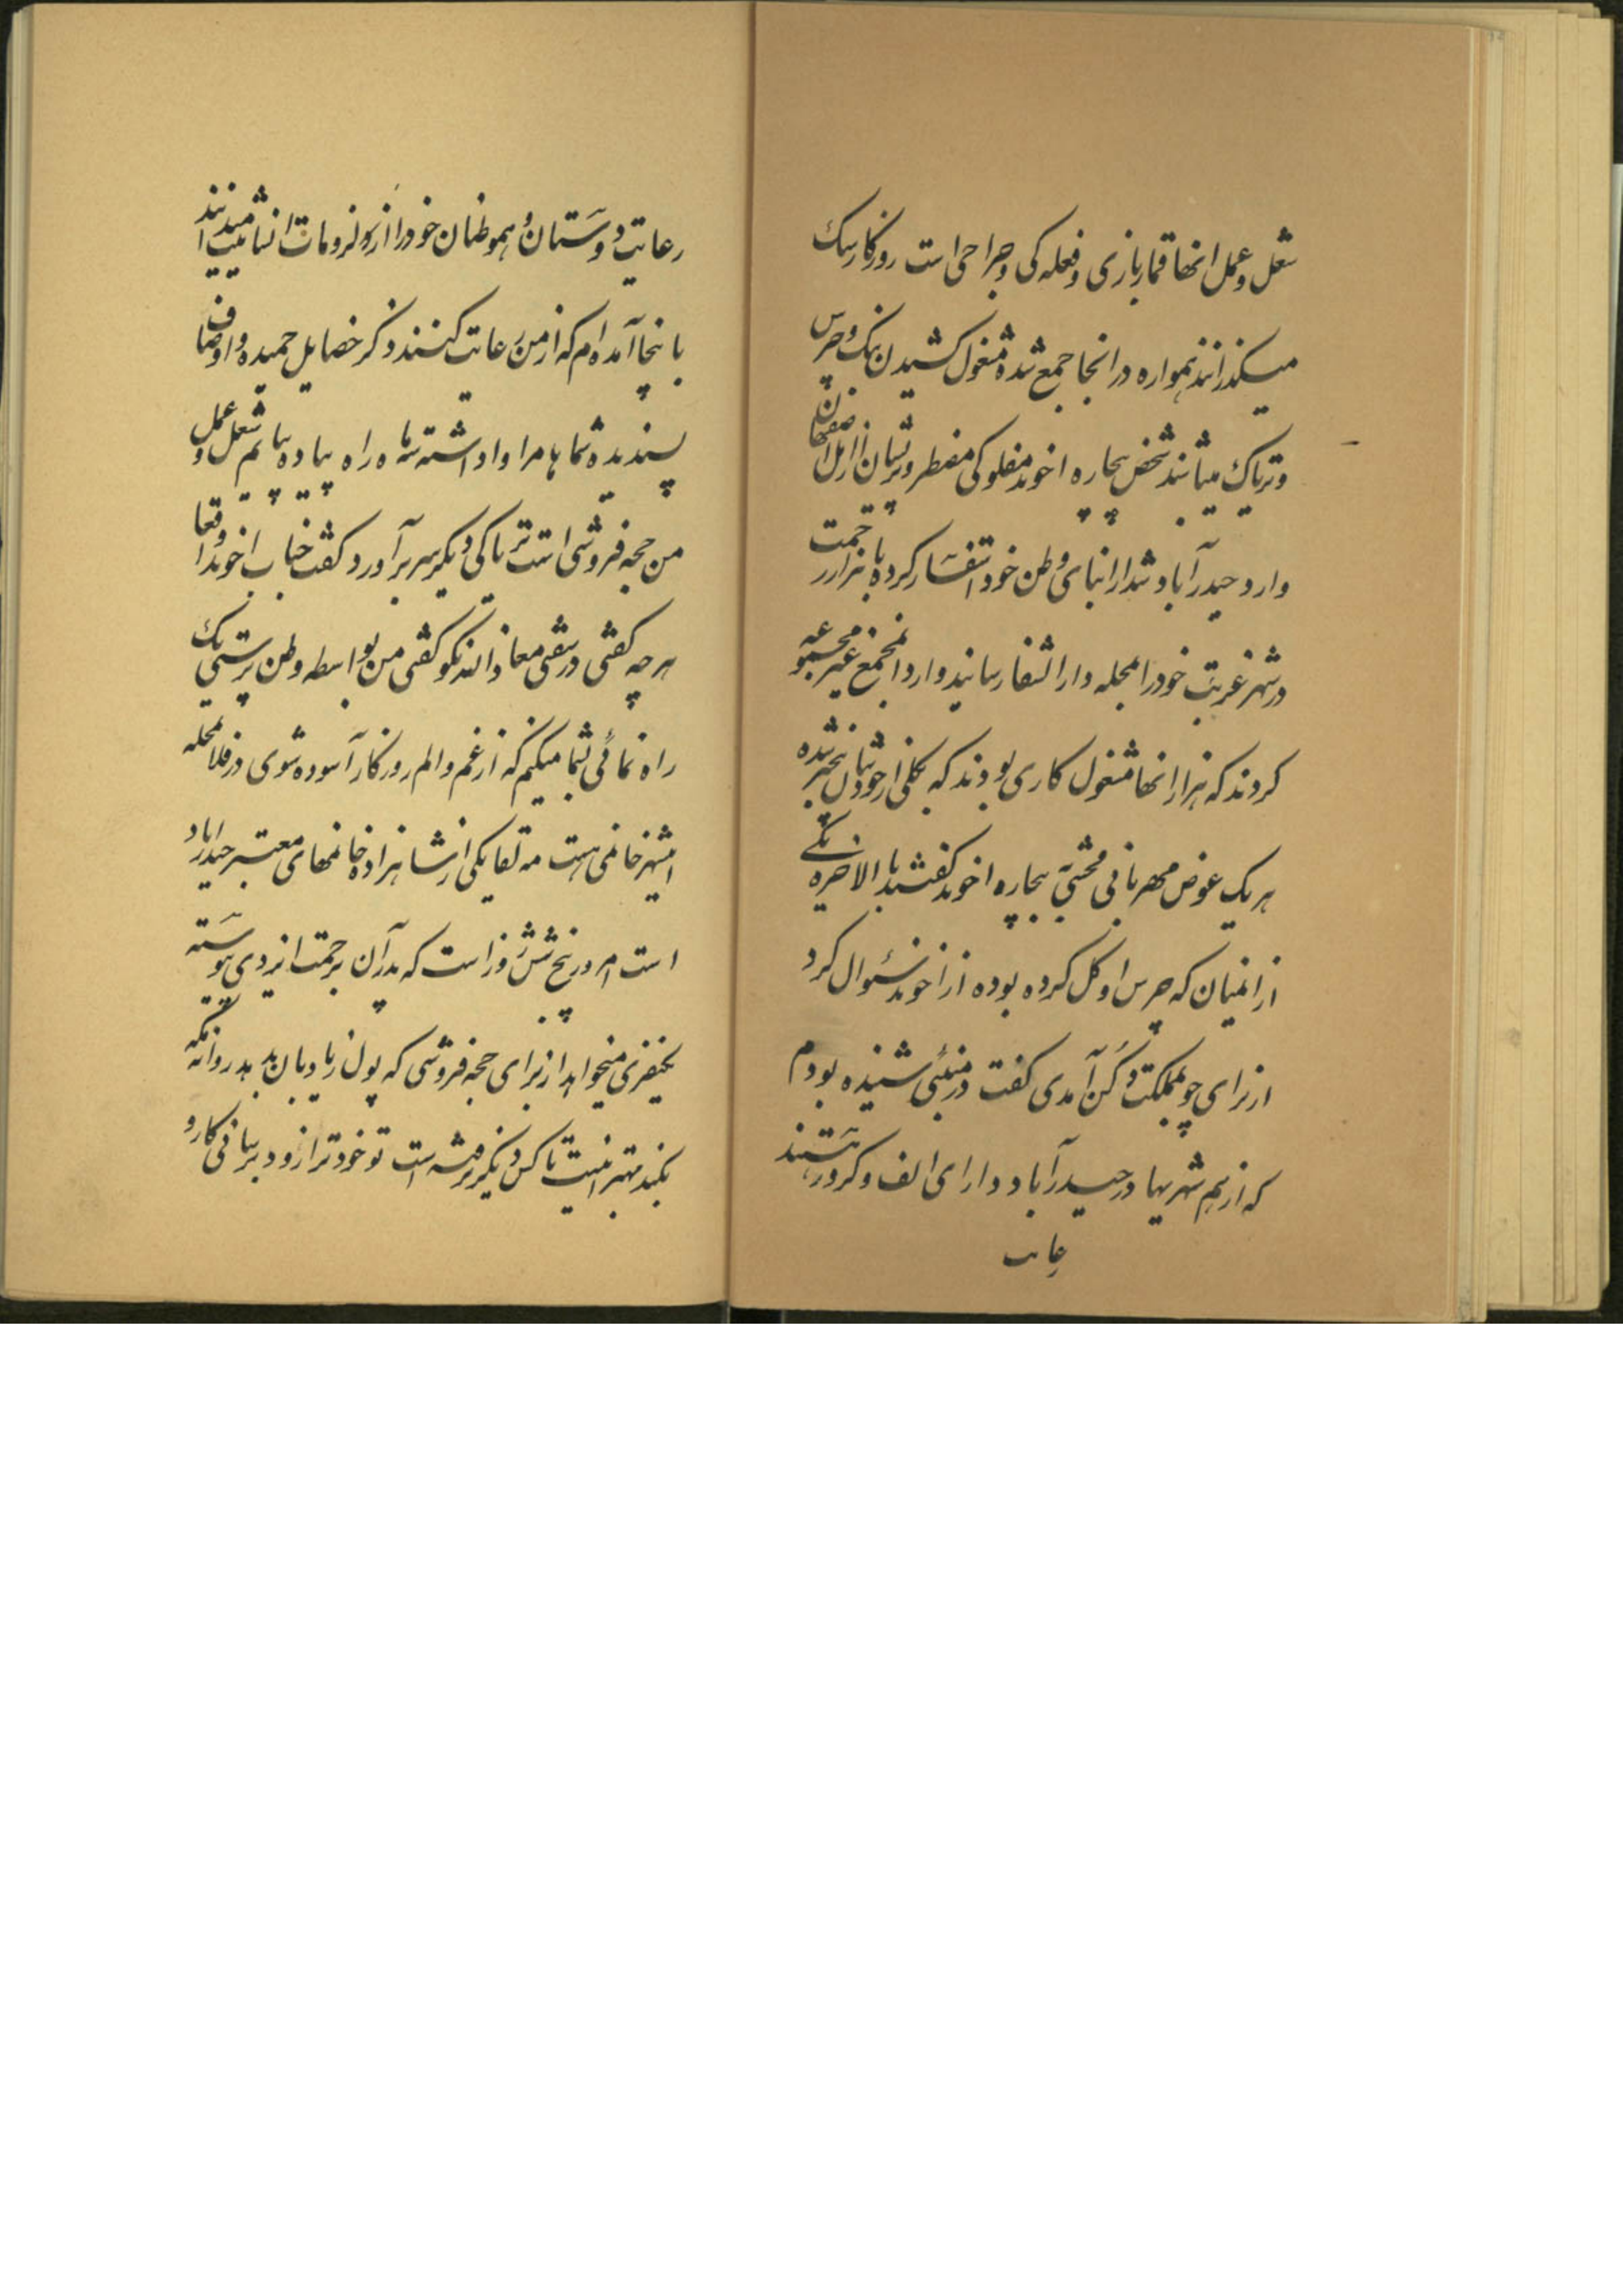 شغل و عمل انها قمار بازی و فعله کی و جراحی است روزکار نیک
میکذرانند همواره در انجا جمع شده مشغول کشیدن بنک و چرس
و تریاک میباشند شخص بیچاره اخوند مفلوکی مضطر و پریشان از اهل اصفهان
وارد حیدرآباد شد از ابنای وطن خود استفسار کرده با هزار زحمت
در شهر غربت خود را بمحله دار الشفا رسانید وارد انمجمع غیر مجموعه
کردند که هزار انها مشغول کاری بودند که بکلی از خودشان بیخبر شده
هر یک عوض مهربانی و محبتی به بیچاره اخوند کفتند بالاخره یکی
از انمیان که چرس او کل کرده بوده از اخوند سئوال کرد
از برای چه بمملکت دکن آمدی کفت در بمبئی شنیده بودم
که از هم شهریها در حیدرآباد دارای الف و کرور هستند
رعایت دوستان و هموطنان خود را از لزومات انسانیت میدانند
باینجا آمده ام که از من رعایت کنند ذکر خصایل حمیده و اوصاف
پسندیده شما ها مرا وا داشته نه ماه راه پیاده بیایم شغل و عمل
من حجه فروشی است تریاکی دیکر سر برآورد کفت جناب اخوند واقعا
هر چه کفتی در سفتی معاذ الله نکو کفتی من بواسطه وطن پرستی یک
راه نمائی بشما میکنم که از غم و الم روزکار آسوده شوی در فلان محله
اینشهر خانمی هست مه لقا یکی از شاهزاده خانمهای معتبر حیدرآباد
است امروز پنج شش روز است که پدر آن برحمت ایزدی پیوسته
یکنفری میخواهد از برای حجه فروشی که پول زیاد بان بدهد روانه مکه
بکند بهتر اینست تا کس دیکر نرفته است تو خود تر از زود برسانی کار و